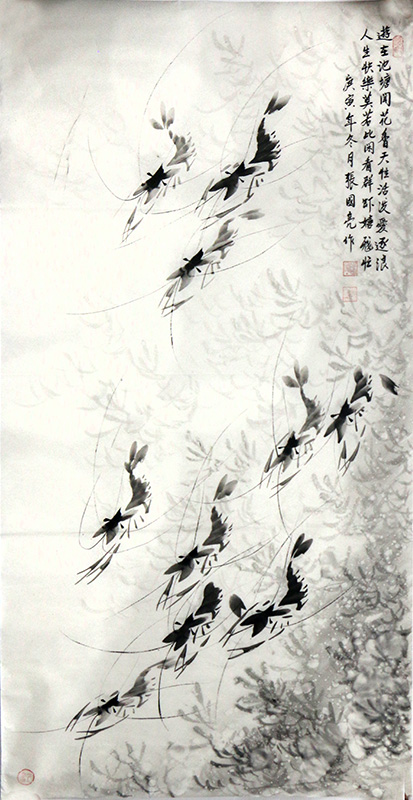 遊在池塘聞花香天性活泼愛逐浪
人生快樂莫若此闲看群虾嬉戲忙
庚寅年冬月張國亮作